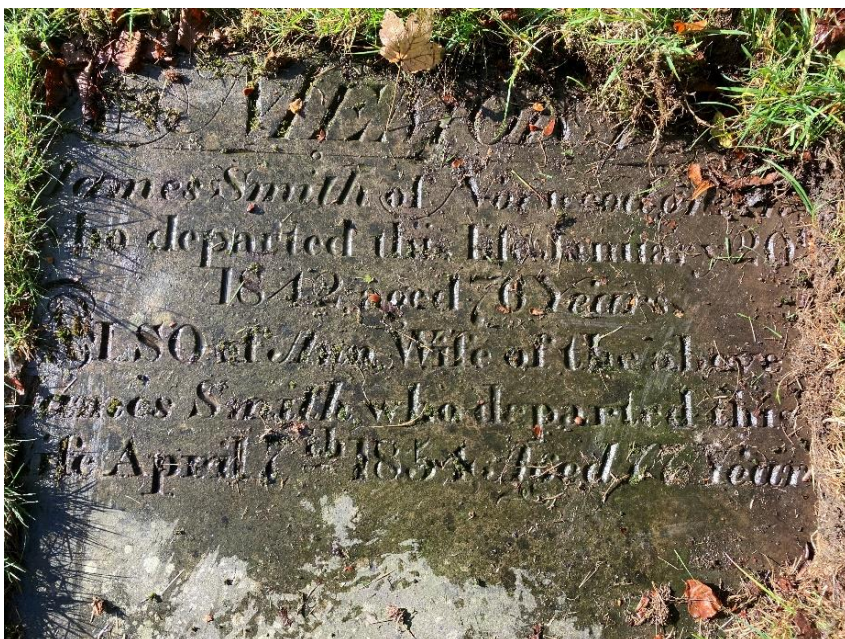 James Smith of
who departed this life January 20
1842 aged 76 Years.
ALSO of Ann Wife of the above
James Smith who departed this
life April 7th 1854 Aged Year